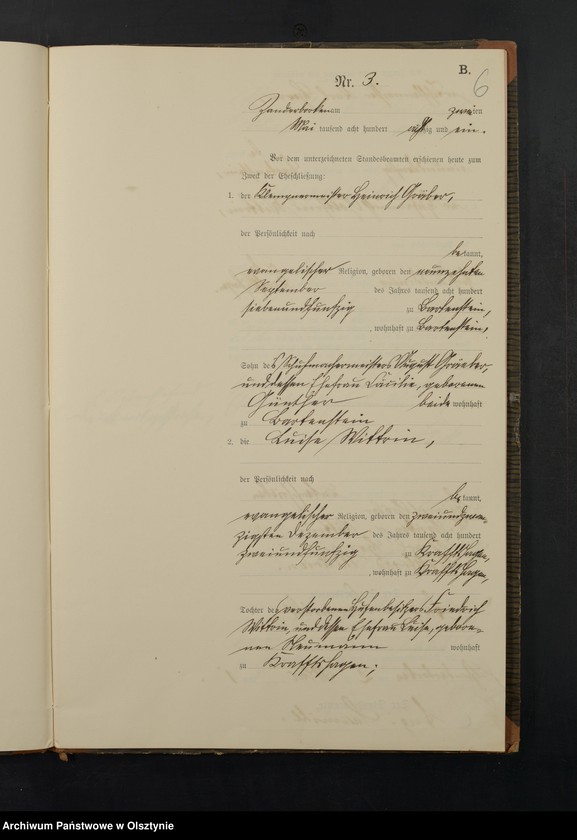 B.
6
Nr. 3.
am zweiten
Mai tausend acht hundert achtzig und ein.
Vor dem unterzeichneten Standesbeamten erschienen heute zum
Zweck der Eheschließung:
1. der Klempnermeister Heinrich Gräber,
der Persönlichkeit nach
bekannt,
evangelischer Religion, geboren den neunzehnten
September des Jahres tausend acht hundert
siebenundfunfzig zu Bartenstein,
, wohnhaft zu Bartenstein,
Sohn des Schuhmachermeisters August Gräber,
und dessen Ehefrau Cäcilie, geborenen
Günther beide wohnhaft
zu Bartenstein
2. die Luise Wittrin,
der Persönlichkeit nach
bekannt,
evangelischer Religion, geboren den zweiundzwan-
zigsten Dezember des Jahres tausend acht hundert
zweiundfunfzig zu Kraftshagen,
, wohnhaft zu Kraftshagen,
Tochter des verstorbenen Hufenbesitzers Friedrich
Wittrin, und dessen Ehefrau Luise, gebore-
nen Neumann wohnhaft
zu Kraftshagen;
Archiwum Państwowe w Olsztynie